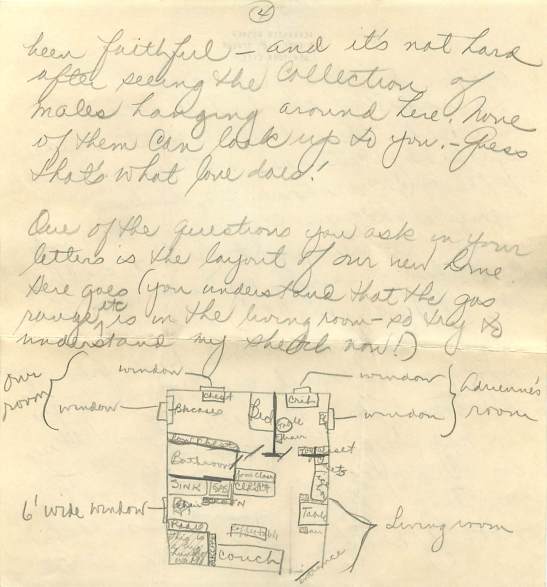 4
been faithful - and it's not hard
after seeing the collection of
males hanging around here. None
of them can look up to you. - Guess
that's what love does!
One of the questions you ask in your
letters is the layout of our new home
Here goes (you understand that the gas
range etc is in the living room - so try to
understand my sketch now!)
our room
window
window
window
window
Adrienne's room
chest
Bkcases
Bed
Crib
Bathroom
closet
SINK
chest
6' wide window
Table
Radio
couch
Living room
entrance